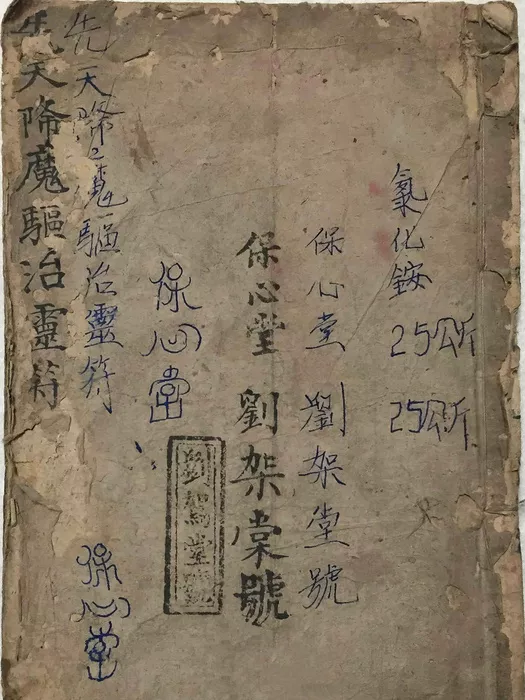 氯化銨
25公斤
25公斤
保心堂 劉架堂號
保心堂 劉架棠號
劉駕堂號
保心堂
保心堂
先天降魔驅治靈符
先天降魔驅治靈符